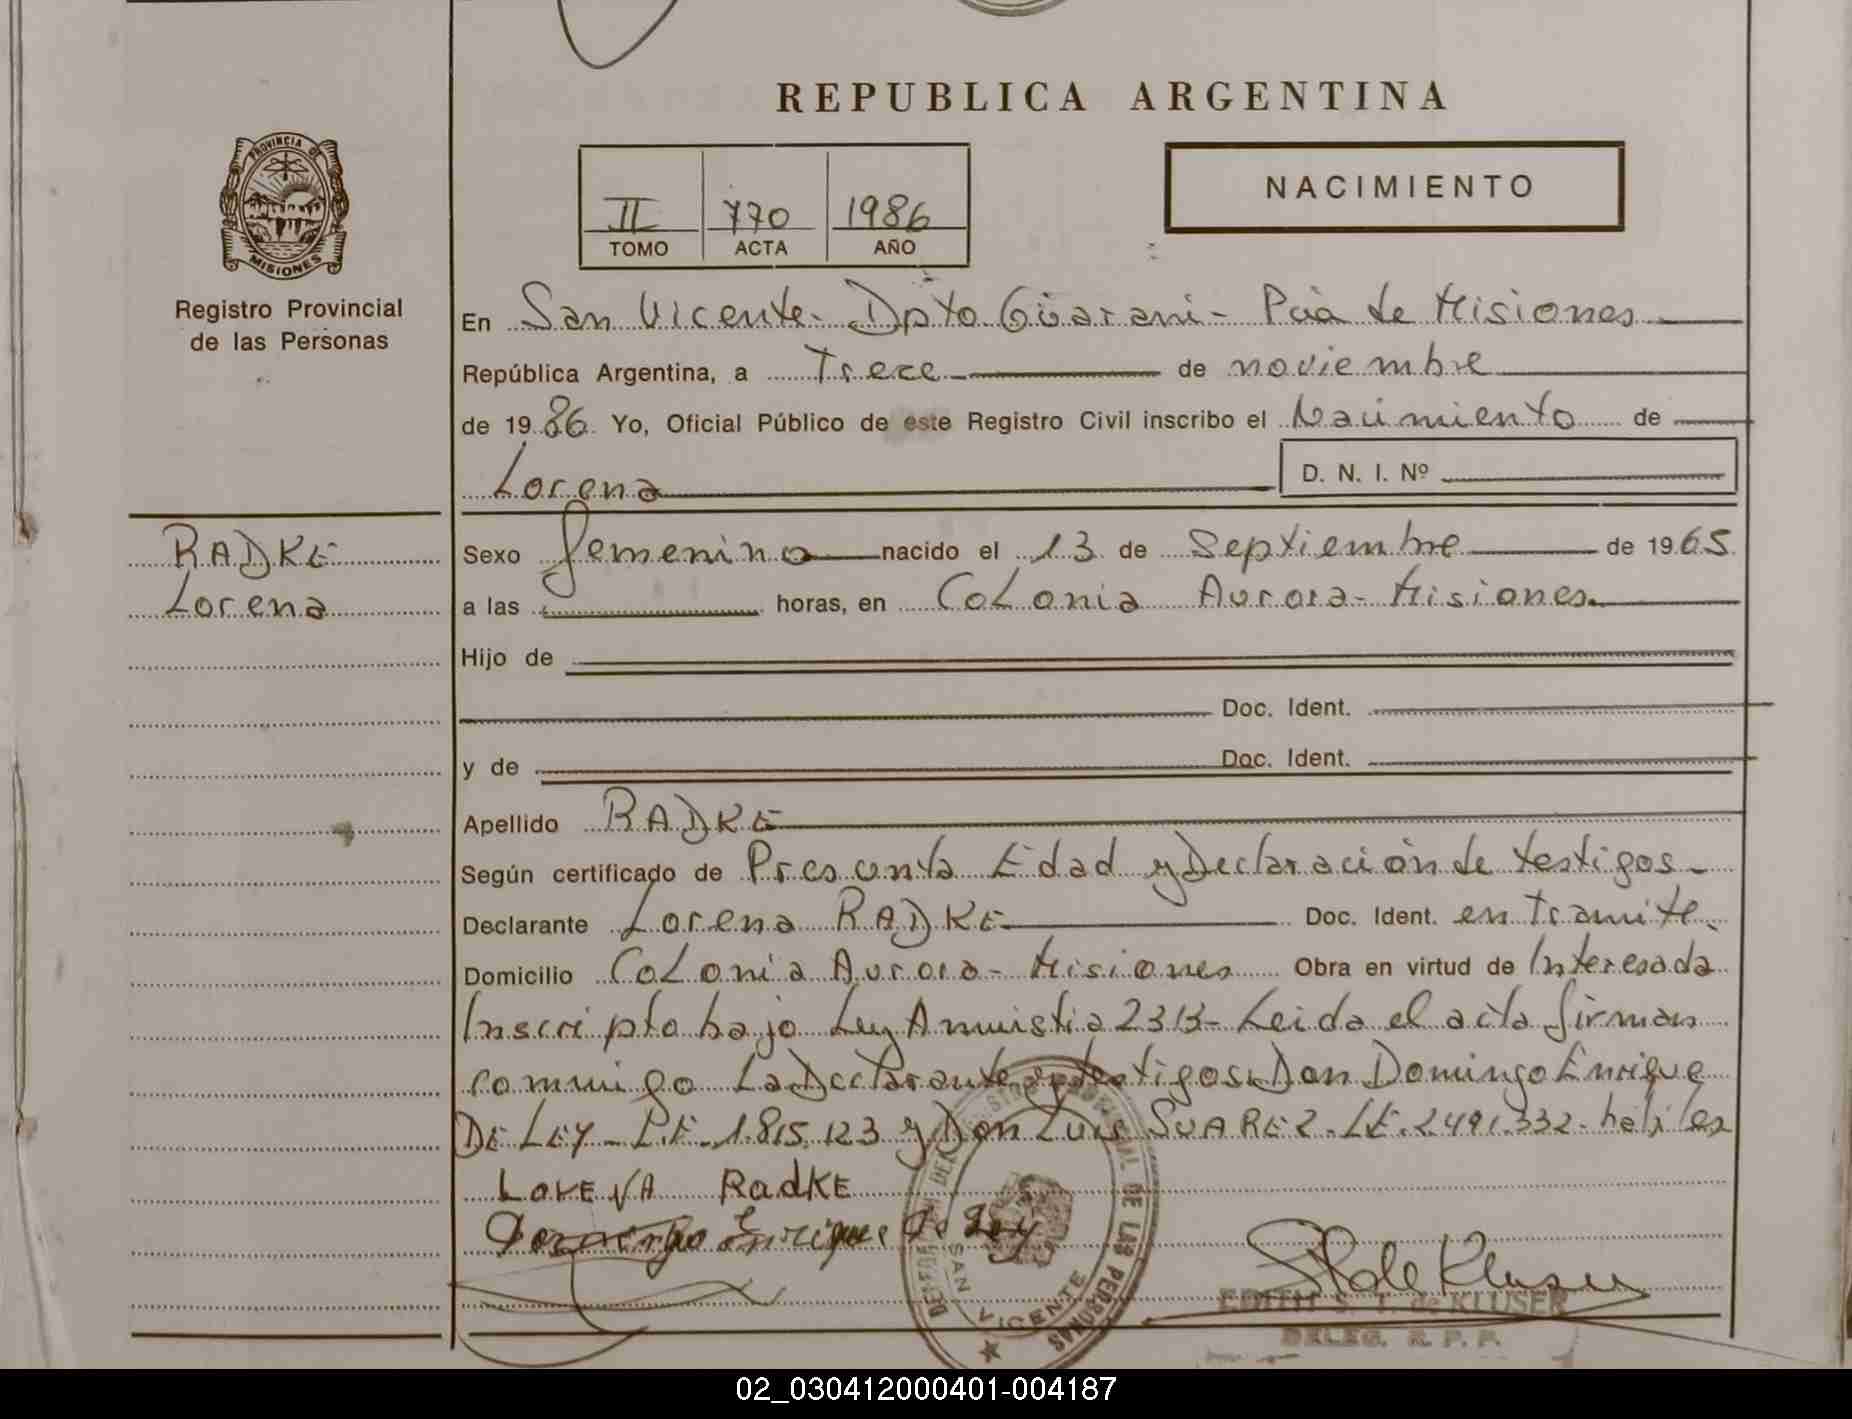 REPUBLICA ARGENTINA
PROVINCIA DE
MISIONES
Registro Provincial
de las Personas
II 770 1986
TOMO ACTA AÑO
NACIMIENTO
En San Vicente - Dpto Guarani - Pcia de Misiones
República Argentina, a Trece de noviembre
de 1986 Yo, Oficial Público de este Registro Civil inscribo el Nacimiento de
Lorena D. N. I. Nº
RADKE
Lorena
Sexo femenino nacido el 13 de Septiembre de 1965
a las horas, en Colonia Aurora - Misiones
Hijo de
Doc. Ident.
y de Doc. Ident.
Apellido RADKE
Según certificado de Presunta Edad y Declaración de testigos -
Declarante Lorena RADKE Doc. Ident. en tramite.
Domicilio Colonia Aurora - Misiones Obra en virtud de Interesada
Inscripto bajo Ley Amnistia 2313 - Leida el acta firman
conmigo La Declarante y testigos Don Domingo Enrique
DE LEY - L.E. 1.815.123 y Don Luis SUAREZ - LE. 2491.332 - habiles
LORENA RadKE
Domingo Enrique de Ley
DEL PROVINCIAL DE LAS PERSONAS
SAN VICENTE
EDITH S. T. de KLUSER
DELEG. R. P. P.
02_030412000401-004187